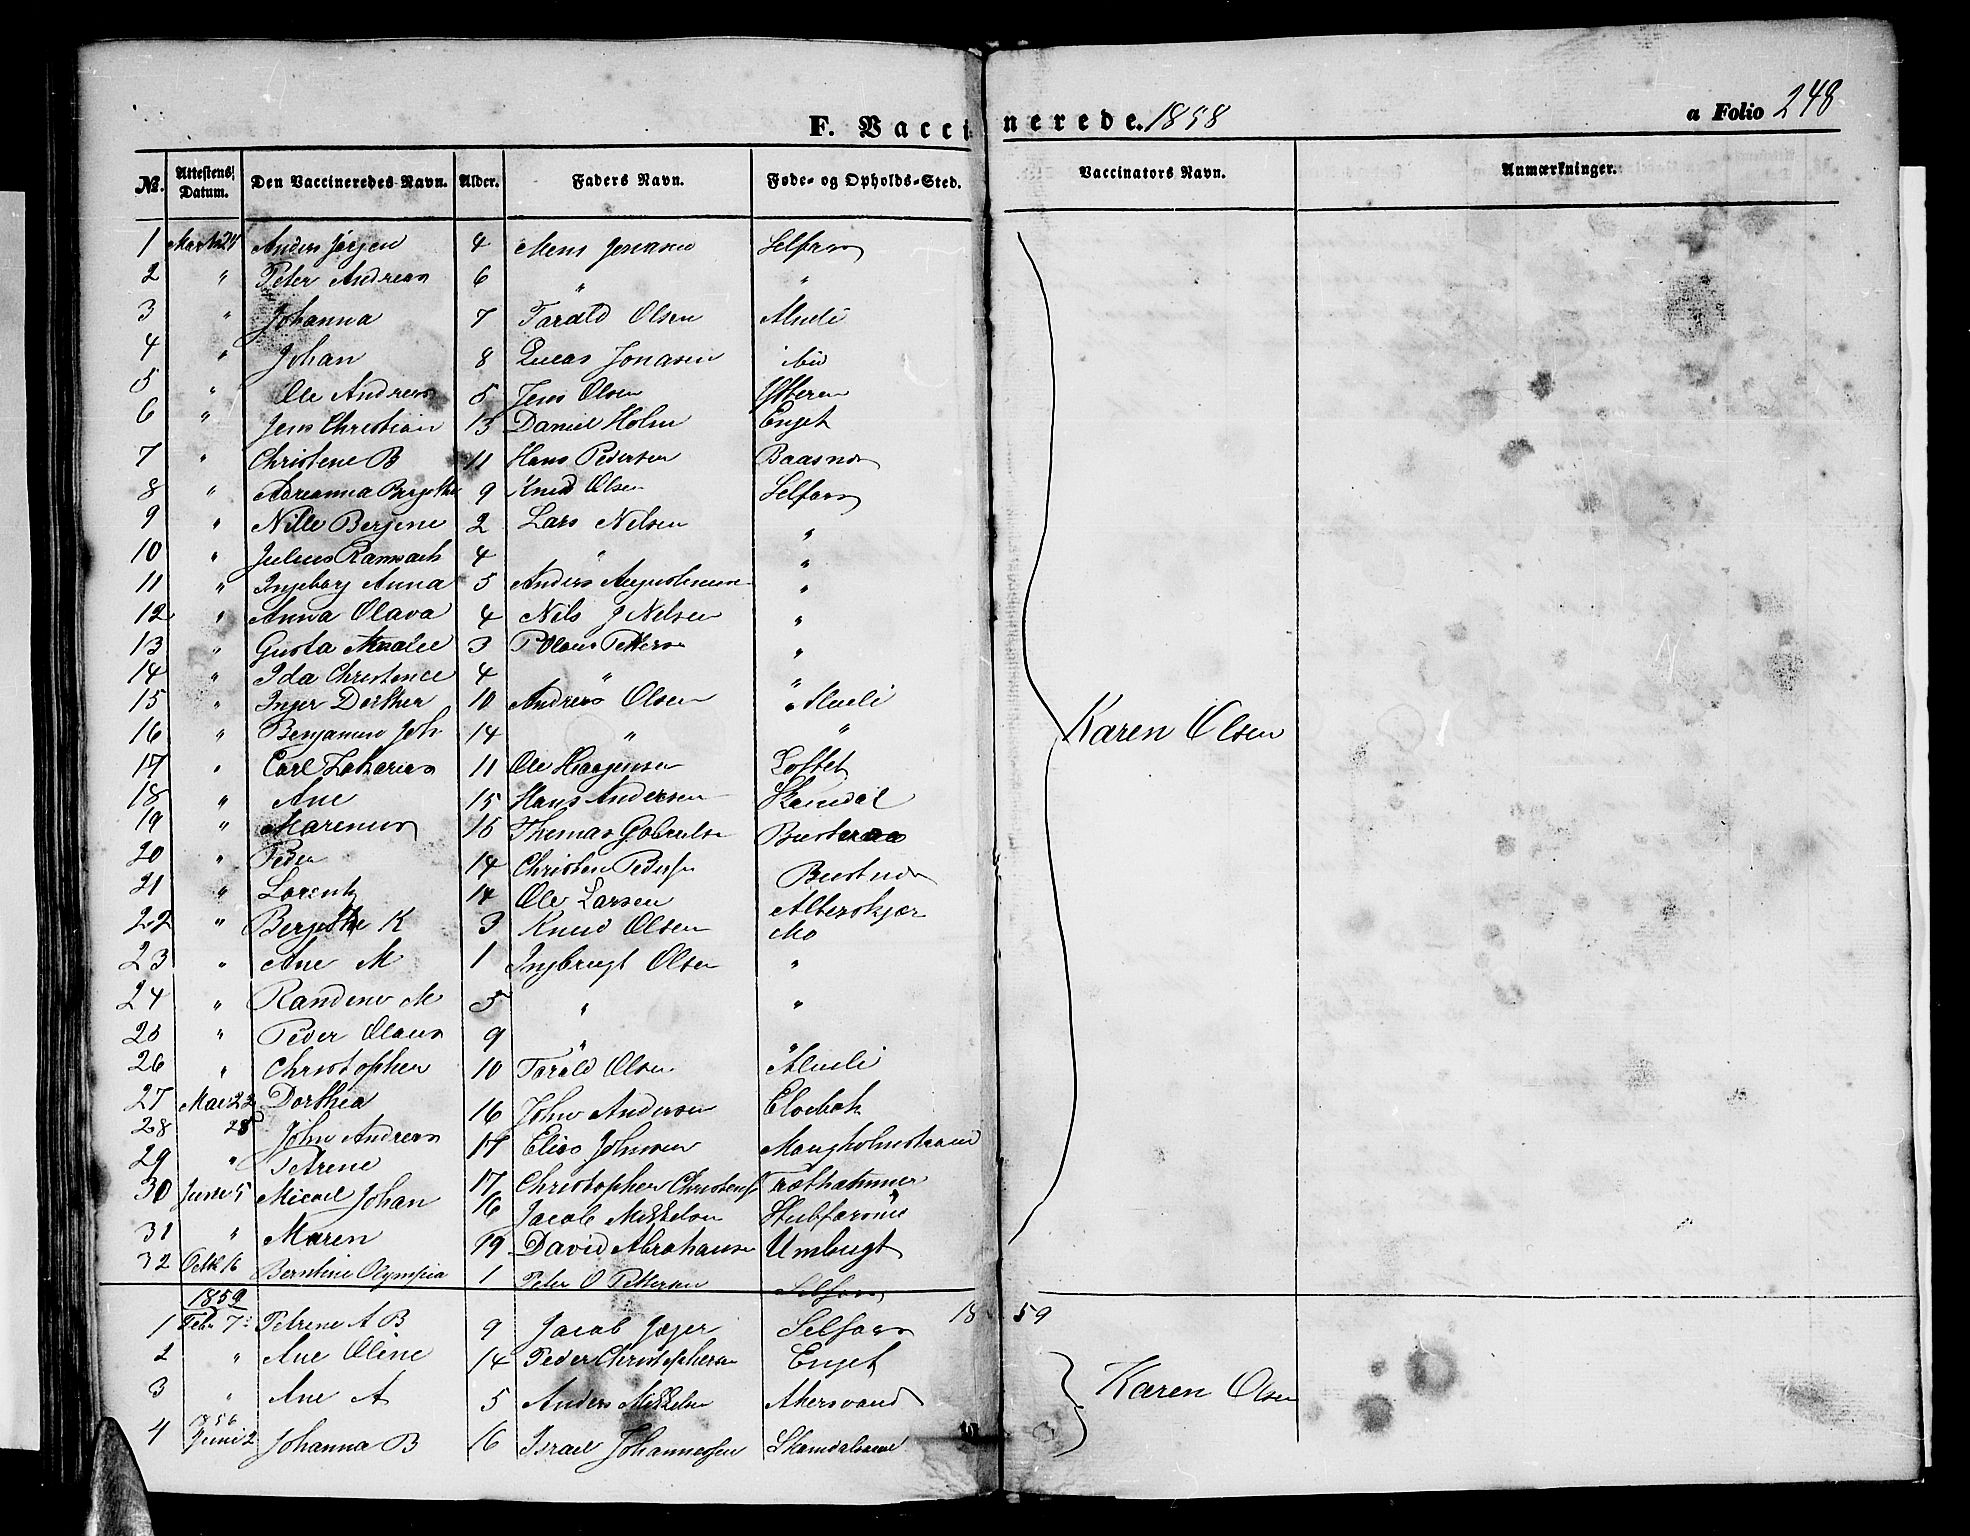 F. Vaccinerede. 1858
a Folio 248
No. Attestens Datum. Den Vaccineredes Navn. Alder. Faders Navn. Føde- og Opholds-Sted. Vaccinators Navn. Anmærkninger.
1 Marts 24 Anders Jørgen 4 Mons Jensen Selfors
2 " Peter Andreas 6 " "
3 " Johanna 7 Tarald Olsen
4 " Johan 8 Lucas Jonasen ibid
5 " Ole Andreas 5 Jens Olsen Ytteren
6 " Jens Christian 13 Daniel Holm Enget
7 " Christene B 11 Hans Pedersen Baasmo
8 " Adreanna Bergethe 9 Knud Olsen Selfors
9 " Nille Bergene 2 Lars Nelsen "
10 " Julius 4 " "
11 " Ingeborg Anna 5 Anders "
12 " Anna Olava 4 Nils J Nelsen "
13 " Gusta Amalie 3 P Olaus Petters "
14 " Ida Christence 4 " "
15 " Inger Dorthea 10 Andreas Olsen
16 " Benjamin Joh 14 " "
17 " Carl Zakarias 11 Ole Haagensen Loftet
18 " Ane 15 Hans Andersen
19 " Marenus 15 Thomas
20 " Peder 14 Christen Peders
21 " Lorentz 14 Ole Larsen Alterskjær
22 " Bergethe K 3 Knud Olsen Mo
23 " Ane M 1 Ingbrigt Olsen "
24 " Randine M 5 " "
25 " Peder Olaus 9 " "
26 " Christopher 10 Tarald Olsen
27 Mai 22 Dorthea 16 John Andersen
28 28 John Andreas 17 Elias Johnsen
29 " Petrene 17 Christopher Christens Træthammer
30 Juni 5 Micael Johan 16 Jacob Mikkelsen
31 " Maren 19 David Abrahamsen Umbugt
32 Octb 16 Berntine Olympia 1 Peter O Pettersen Selfors
Karen Olsen
1859
1859
1 Febr 7 Petrene A B 9 Jacob Jæger Selfors
2 " Ane Oline 14 Peder Christophersen Enget
3 " Ane A 5 Anders Mikkelsen Akersvand
4 1856 Juni 2 Johanna B 16 Israel Johannessen
Karen Olsen